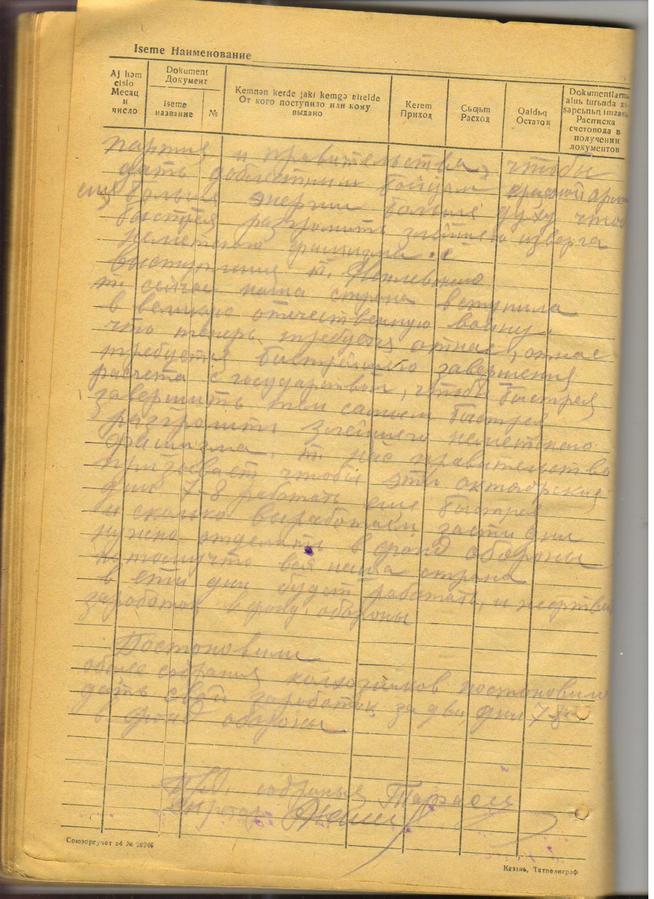 Iseme Наименование
Aj həm cislo
Месяц и число
Dokument
Документ
Iseme
название
№
Kemnən kerde jaki kemgə birelde
От кого поступило или кому выдано
Kerem
Приход
Сьqьm
Расход
Qaldьq
Остаток
Расписка счетовода в получении документов
партия и правительства, чтобы
дать доблестным бойцам красной арм
еще больше энергии больше духу чтоб
быстрея разгромить злейшего изверга
неметского фашизма.
Выступления т.
т. сейчас наша страна вступила
в великую отечественную войну
что теперь требуется отнас, отнас
требуется быстрейшего завершения
расчета с государством, чтоб быстрея
завершить тем самым быстрея
разгромить злейшего неметского
фашизма, т. нас правительство
призывает чтобы эти октябрьские
дни 7-8 работать еще быстрея
и сколько выработаем за эти дни
нужно отделить в фонд обороны
потомучто вся наша страна
в эти дни будет работать, и жертв
заработок в фонд обороны
Постоновили
общее собрания колхозников постоновили
дать свой заработок за два дня 7-8
в фонд обороны
собранья
Союзоргучет
Казань, Татполиграф